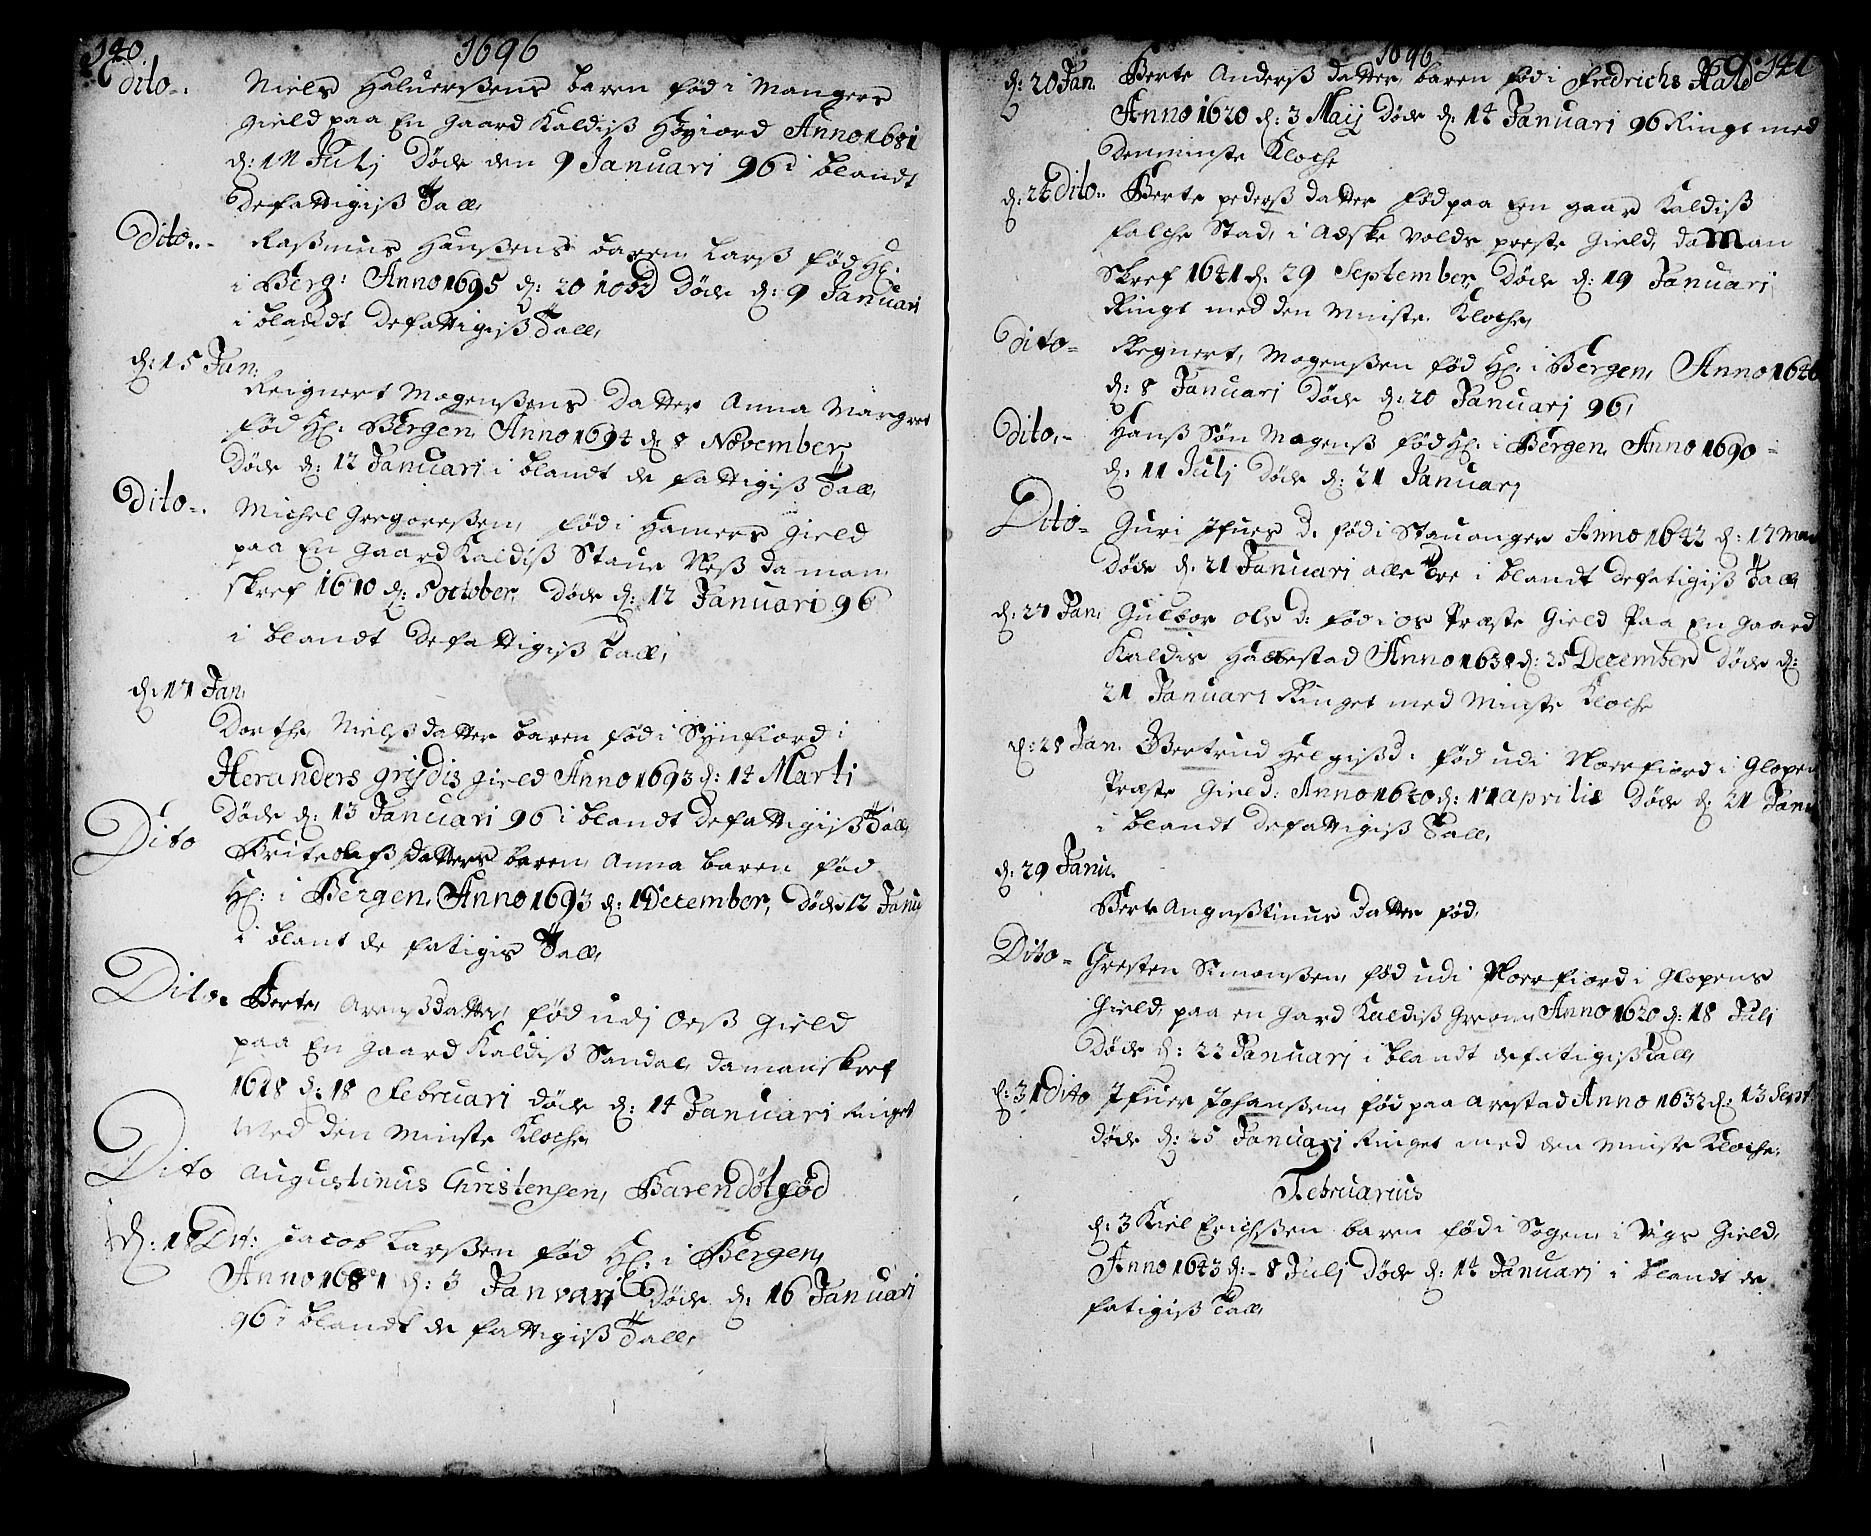 140.
1696
Dito. Niels Haluerßens baren fød i Mangers
gield paa En gaard Kaldiß Høyiord Anno 1681
d: 11 Julj Døde den 9 Januari 96 i blandt
Defattigiß Tall,
Dito. Raßmus Hanßens baren Larß fød H:
i Berg: Anno 1695 d: 20 Døde d: 9 Januari
i blandt Defattigiß Tall,
d: 15 Jan:
Reignert Mogenßens Datter Anna Margret
fød H: Bergen, Anno 1694 d: 8 November
Døde d: 12 Januari i blandt de fattigiß Tall,
Dito. Michel Gregoreßen, fød i Hamers gield
paa En Gaard Kaldiß Staue Neß da man
skref 1610 d: 5 october, Døde d: 12 Januari 96
i blandt Defattigiß Tall,
d: 17 Jan.
Dorthe Nielßdatter baren fød i Synfiord i
Heranders grijdis gield Anno 1693 d: 14 Marti
Døde d: 13 Januari 96 i blandt Defattigiß Tall,
Dito Brite Olufß datters baren, Anna baren fød
H: i Bergen, Anno 1693 d: 1 December, Døde 12 Janu
i blant de fatigis Tall,
Dito. Berte, Arenßdatter, fød udj Oeß gield
paa En gaard Kaldiß Sandal, da man skref
1628 d: 18 Februari døde d: 14 Januari Ringet
Med den Minste Kloche,
Dito Augustinus Christensen, Baren Døtfød
d: 18 Dit: Jacob Larßen fød H: i Bergen,
Anno 1681 d: 3 Januari Døde d: 16 Januari
96 i blandt de fattigiß Tall,
1696
141
d: 20 Jan. Berte Anderß datter, baren fød i Fredrichs Hald
Anno 1620 d: 3 Maij Døde d: 14 Januari 96 Ringt med
Den minste Kloche
d: 24 Dito. Berte pederß datter fød paa Een gaar Kaldiß
falche Stad, i Adske volds preste gield, da Man
Skref 1641 d: 29 September, Døde d: 19 Januari
Ringt med den Minste Kloche,
Dito Regnert, Mogenßen fød H: i Bergen, Anno 1646
d: 8 Januari Døde d: 20 Januarj 96,
Dito, Hanß Søn Mogenß fød H: i Bergen, Anno 1690
d: 11 Julj Døde d: 21 Januarj
Dito Guri Ifuers D. fød i Stauanger Anno 1642 d: 17 Ma
Døde d: 21 Januari alle Tre i blandt Defatigiß Tall
d: 27 Jan, Gulbor ols D: fød i Os Præste Gield Paa En gaard
Kaldis Hallestad Anno 1638 d: 25 December Døde d:
21 Januari Ringet med Minste Kloche
d: 28 Jan. Bertrud Helgißd: fød udi Norfiord i Glopen
Præste Gield: Anno 1640 d: 11 aprilis Døde d: 21 Janu
i blandt Defattigiß Tall,
d: 29 Janu.
Berte Anguißtinus Datter fød,
Dito Gresten Simonßen, fød udi Norfiord i Glopens
Gield, paa en gard Kaldiß Greon, Anno 1620 d: 18 Julj
Døde d: 22 Januarj i blandt defatigiß Tall,
d: 31 Dito Ifuer Johanßen, fød paa Arestad Anno 1632 d: 13 Sept
døde d: 25 Januari Ringet med den Minste Kloche,
Februarius
d: 3 Kiel Erichßen baren fød i Sogen, i Vigs Gield,
Anno 1643 d: 8 Julj Døde d: 14 Januarj i blandt de
fatigiß Tall,